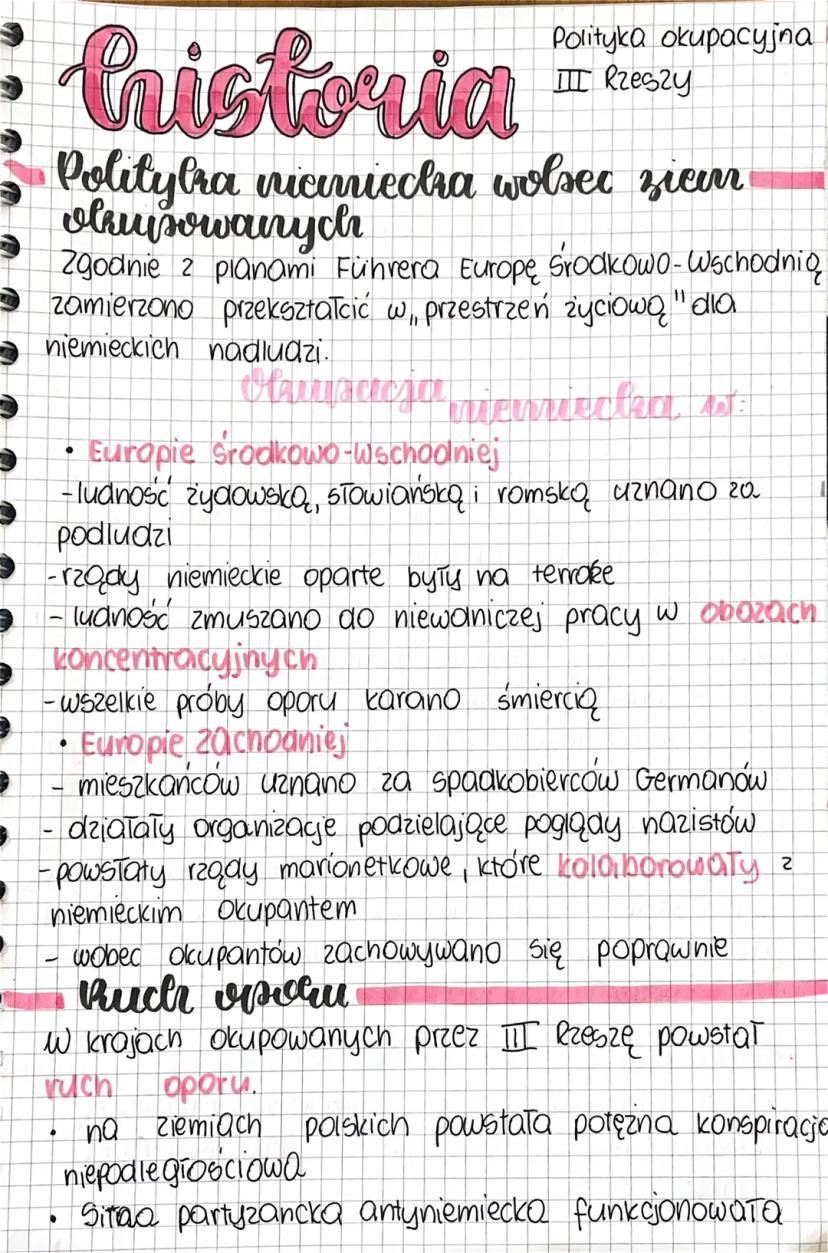 historia
Polityka okupacyjna
III Rzeszy
Polityka niemiecka wobec ziem
okupowanych
Zgodnie z planami Führera Europę Środkowo-Wschodnią
zamierzono przekształcić w „przestrzeń życiową" dla
niemieckich nadludzi.
Okupacja niemiecka w:
• Europie Środkowo-Wschodniej
-ludność żydowską, słowiańską i romską uznano za
podludzi
-rządy niemieckie oparte były na terroże
- ludność zmuszano do niewolniczej pracy w obozach
koncentracyjnych
-wszelkie próby oporu karano śmiercią
• Europie Zachodniej
- mieszkańców uznano za spadkobierców Germanów
- działały organizacje podzielające poglądy nazistów
-powstały rządy marionetkowe, które kolaborowały z
niemieckim okupantem
- wobec okupantów zachowywano się poprawnie
Ruch oporu
W krajach okupowanych przez III Rzeszę powstał
ruch oporu.
• na ziemiach polskich powstała potężna konspiracja
niepodległościowa
• partyzancka antyniemiecka funkcjonowała